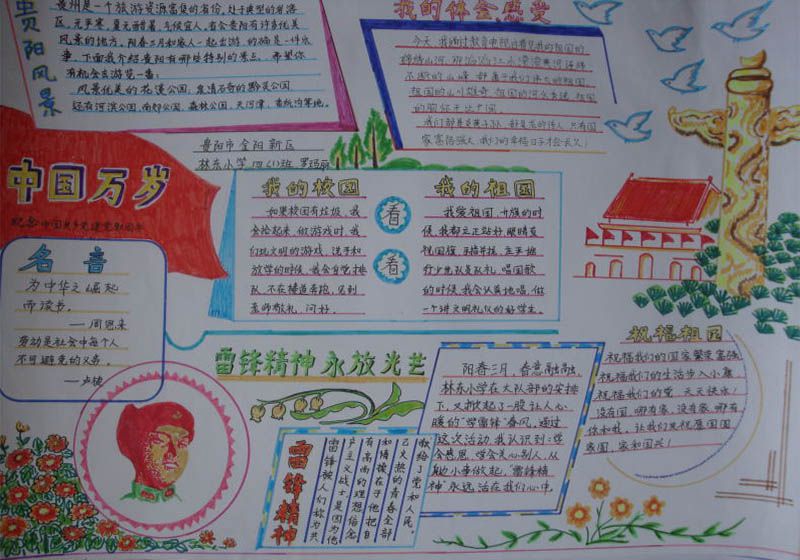 贵阳风景
贵州是一个旅游资源富饶的省份,处于典型的岩溶
区,冬无严寒,夏无酷暑,气候宜人,省会贵阳有许多优美
风景的地方,阳春三月和家人一起出游,的确是一件乐
事,下面我介绍贵阳有哪些特别的景点,希望你
有机会去游览一番:
风景优美的花溪公园,泉清石奇的黔灵公园,
还有河滨公园,南郊公园,森林公园,天河潭,
我的体会感受
今天,我通过教育电视
锦绣山河,
不断的山峰,都属于我们伟大的祖国,
祖国的山川雄奇,祖国的河水秀逸,祖国
我们都是炎黄子孙,都是龙的传人,只有国
家富强强大,我们的幸福日子才会长久!
贵阳市金阳新区
林东小学四(1)班 罗玛丽
中国万岁
纪念中国共产党建党90周年
名言
为中华之崛起
而读书。
——周恩来
劳动是社会中每个人
不可避免的义务。
——卢梭
我的校园
如果校园有垃圾,我
会捡起来,做游戏时,我
们玩文明的游戏,洗手和
放学的时候,我会自觉排
队,不在楼道奔跑,见到
老师敬礼,问好。
看
看
我的祖国
我爱祖国,升旗的时
候,我都立正站好,眼睛直
视国旗,手捂并拢,
行少先队员队礼,唱国歌
的时候,我会认真地唱,做
一个讲文明礼仪的好学生。
雷锋精神永放光芒
雷锋精神
雷锋被人们称为共
产主义战士是因为他
有高尚的理想信念
和情操在于他把自
己火热的青春全部
献给了党和人民。
阳春三月,春意融融,
林东小学在大队部的安排
下,又掀起了一股让人心
暖的“学雷锋”春风,通过
这次活动,我认识到:学
会感恩,学会关心别人,从
小事做起,“雷锋精
神”永远活在我们心中。
祝福祖国
祝福我们的国家繁荣富强
祝福我们的生活步入小康
祝福我们的党,天天快乐!
没有国,哪有家,没有家,哪有
你和我,让我们来祝愿国国
家国,家和国兴!